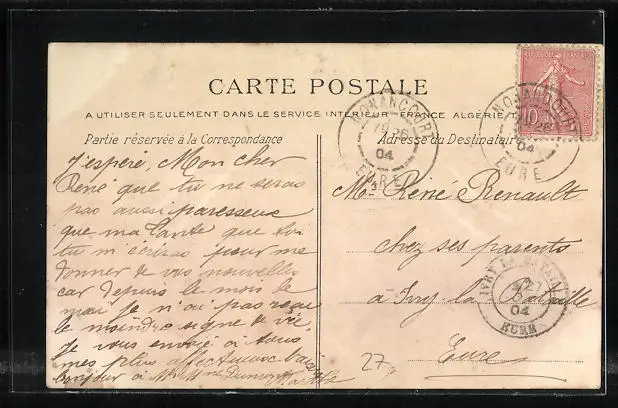 CARTE POSTALE
A UTILISER SEULEMENT DANS LE SERVICE INTERIEUR FRANCE ALGÉRIE
Partie réservée à la Correspondance
Adresse du Destinataire
J'espère, Mon cher
René que tu ne seras
pas aussi paresseux
que ma tante que toi
tu m'écriras pour me
donner de vos nouvelles
car depuis le mois de
mai je n'ai pas reçu
le moindre signe de vie.
Je vous envoie à tous
mes plus affectueux baisers
bonjour à
Mr René Renault
chez ses parents
à Ivry-la-Bataille
Eure
27
NONANCOURT
26
04
EURE
NONANCOURT
26
04
EURE
IVRY LA BATAILLE
27
04
EURE
10